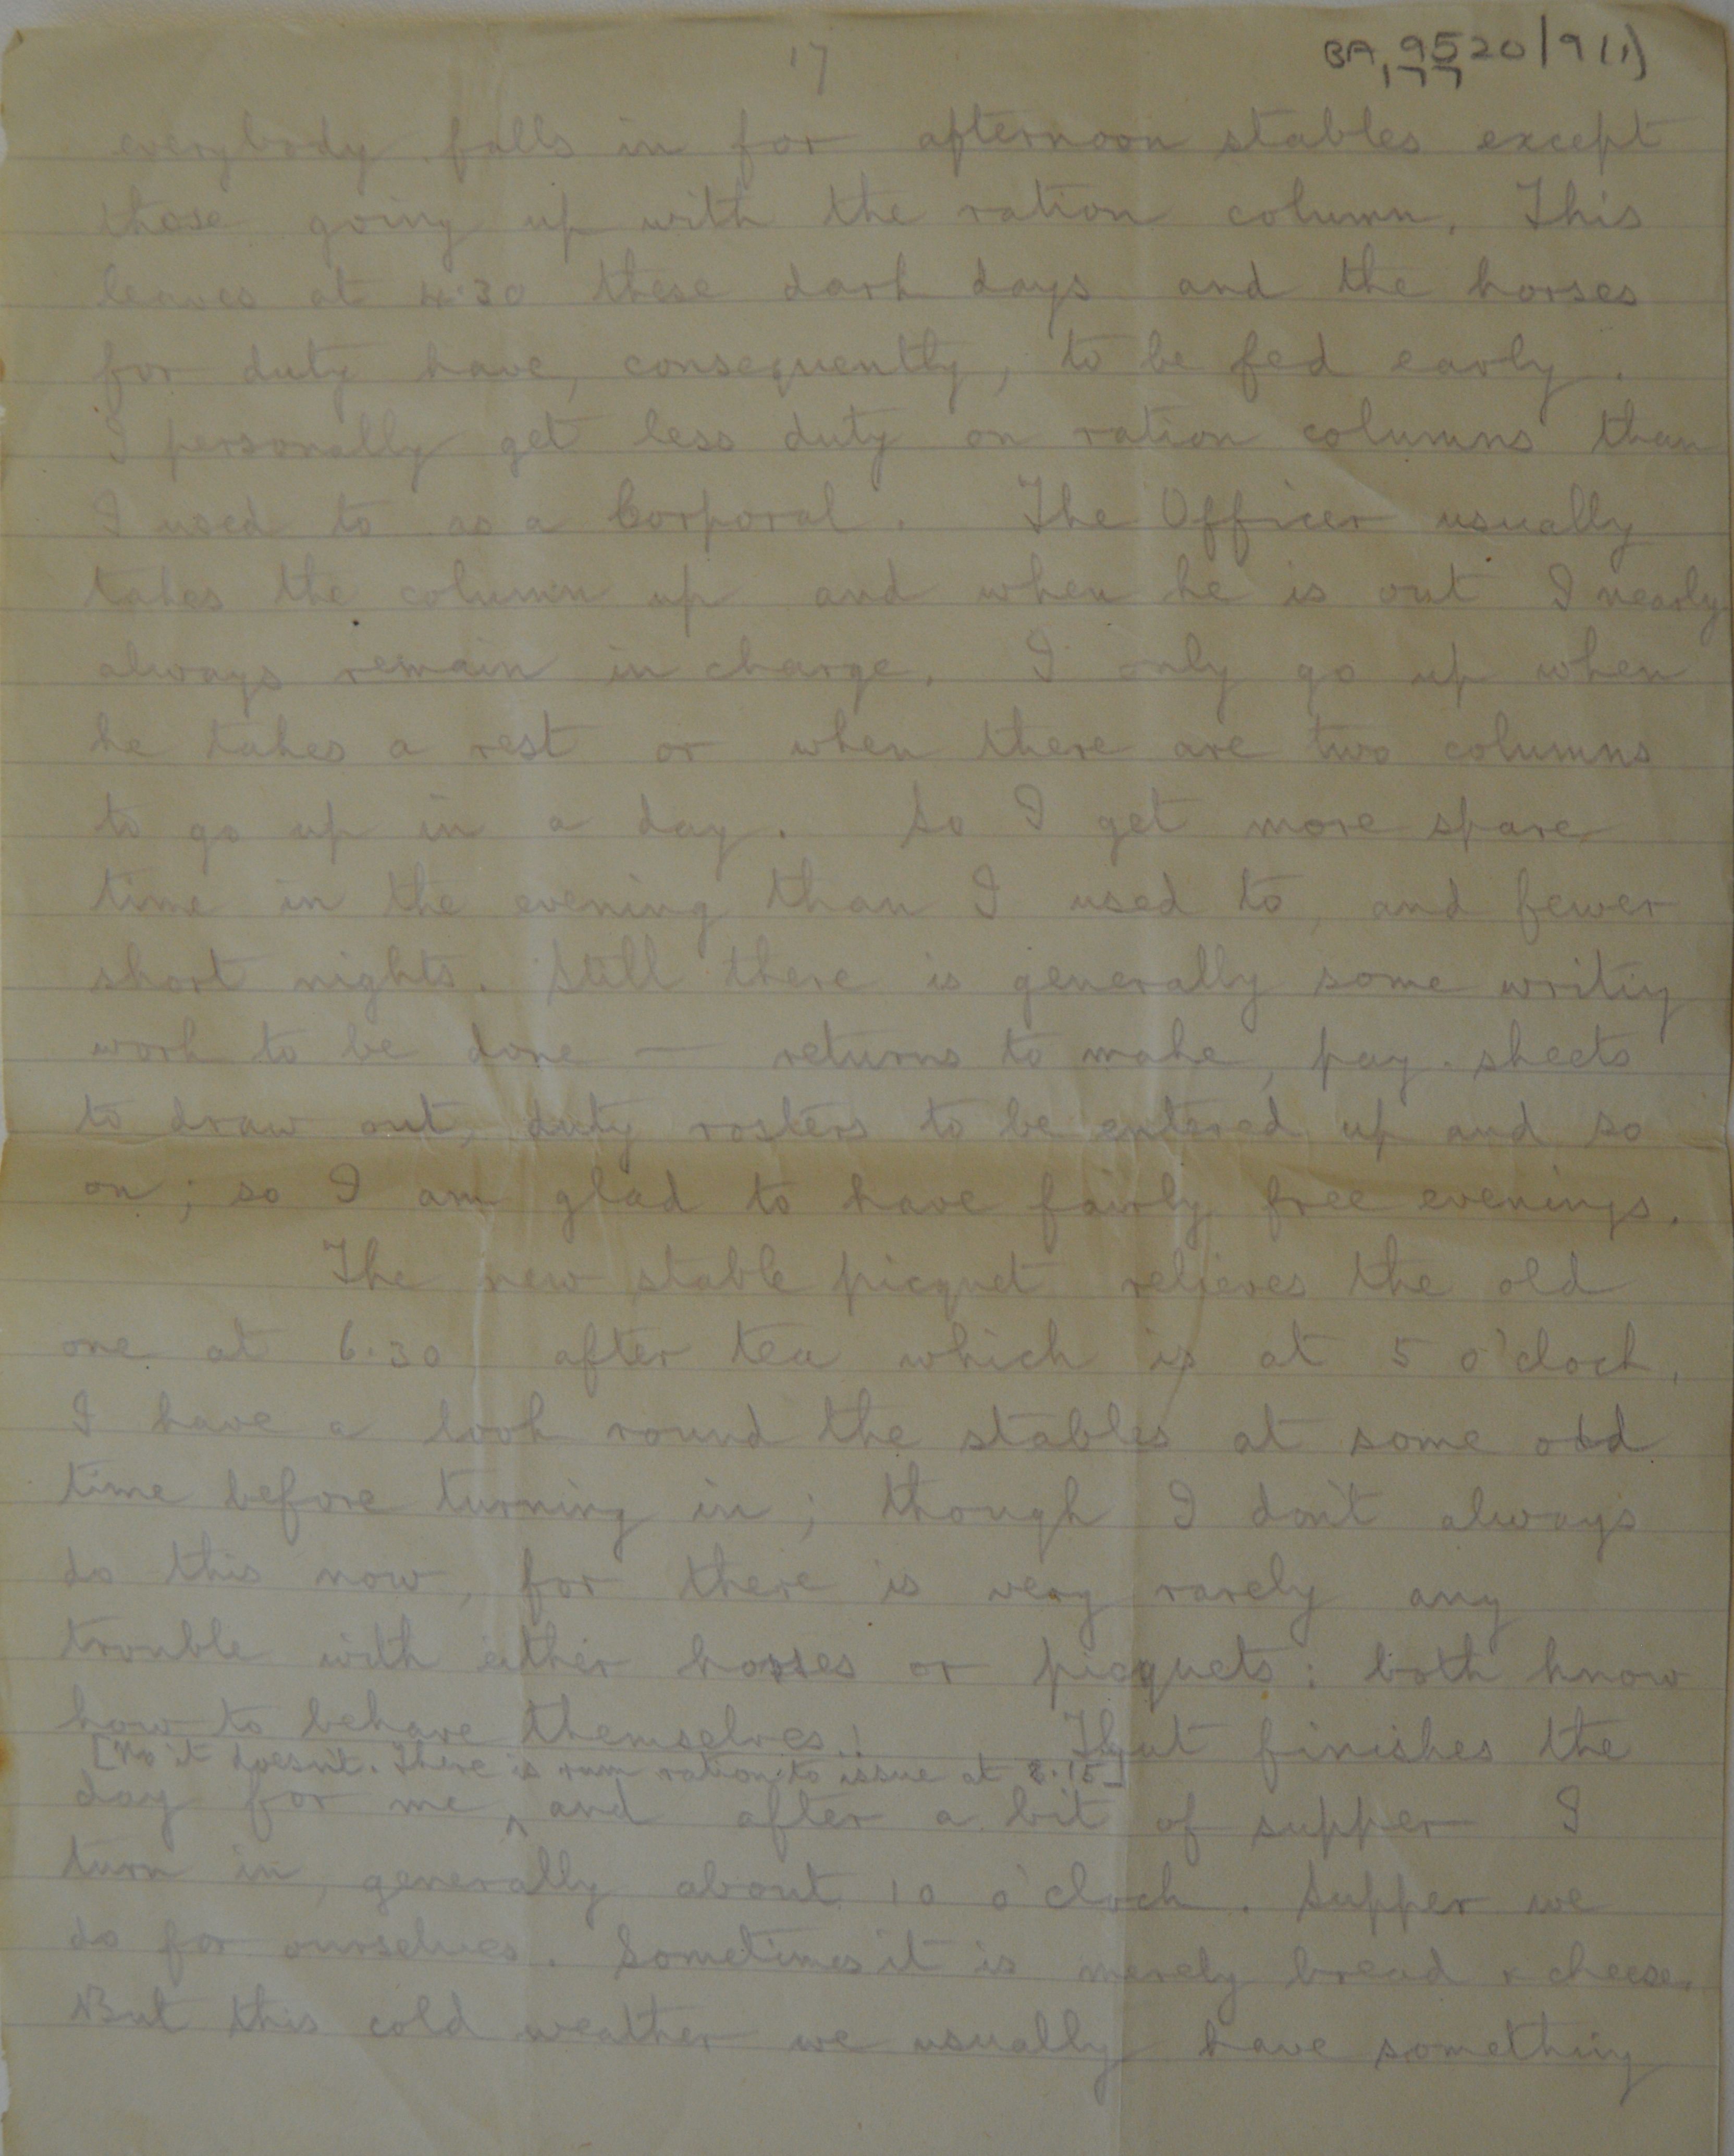 17
BA 9520/9(1)
177
everybody falls in for afternoon stables except
those going up with the ration column. This
leaves at 4.30 these dark days and the horses
for duty have, consequently, to be fed early.
I personally get less duty on ration columns than
I used to as a Corporal. The Officer usually
takes the column up and when he is out I nearly
always remain in charge. I only go up when
he takes a rest or when there are two columns
to go up in a day. So I get more spare
time in the evening than I used to, and fewer
short nights. Still there is generally some writing
work to be done — returns to make, pay-sheets
to draw out, duty rosters to be entered up and so
on; so I am glad to have fairly free evenings.
The new stable picquet relieves the old
one at 6.30 after tea which is at 5 o'clock.
I have a look round the stables at some odd
time before turning in; though I don't always
do this now, for there is very rarely any
trouble with either horses or picquets: both know
how to behave themselves! That finishes the
[No it doesn't. There is rum ration to issue at 8.15]
day for me ^ and after a bit of supper I
turn in, generally about 10 o'clock. Supper we
do for ourselves. Sometimes it is merely bread & cheese.
But this cold weather we usually have something